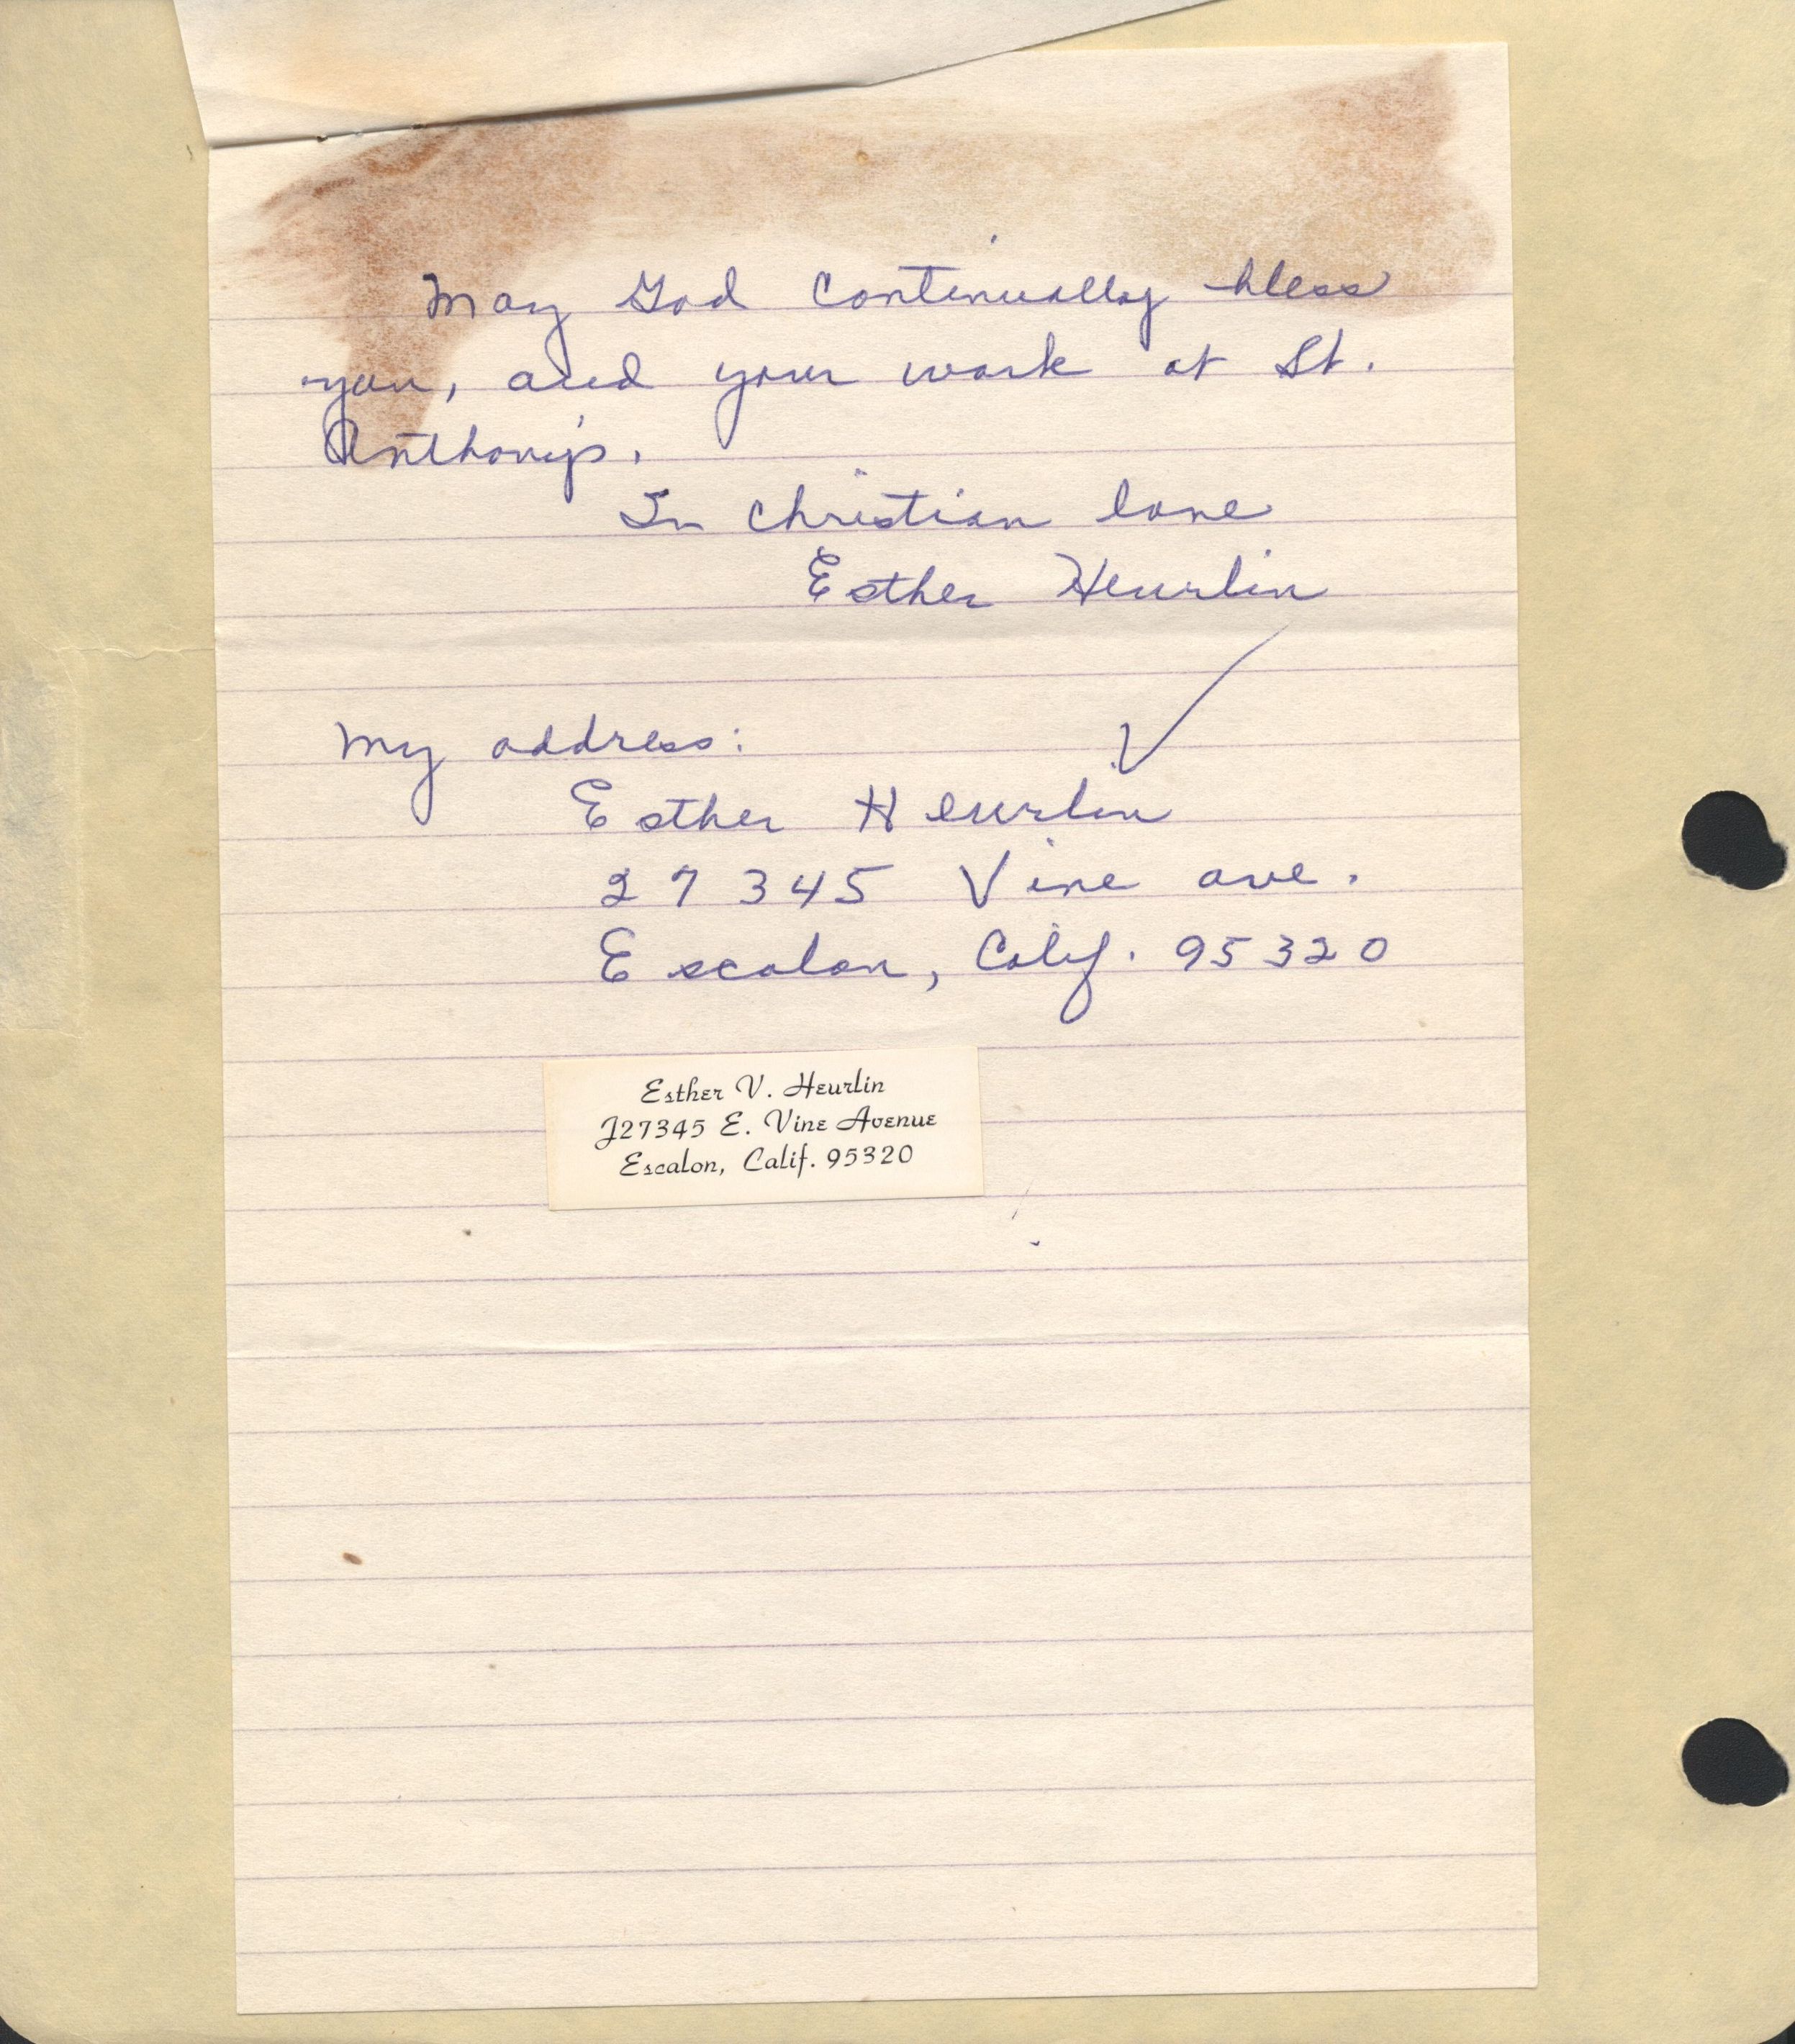 May God continually bless
you, and your work at St.
Anthony's.
In Christian love
Esther Heurlin
My address:
Esther Heurlin
27345 Vine ave.
Escalon, Calif. 95320
Esther V. Heurlin
J27345 E. Vine Avenue
Escalon, Calif. 95320